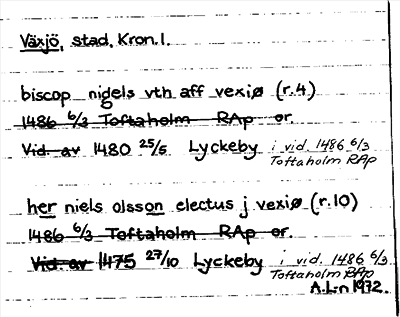 Växjö, stad, Kron. l.
biscop nigels vth aff vexiø (r.4)
1486 6/3 Toftaholm RAp or.
Vid. av 1480 25/5 Lyckeby i vid. 1486 6/3
Toftaholm RAp
her niels olsson electus j vexiø (r.10)
1486 6/3 Toftaholm RAp or.
Vid. av 1475 27/10 Lyckeby i vid. 1486 6/3
Toftaholm RAp
A.L-n 1972.